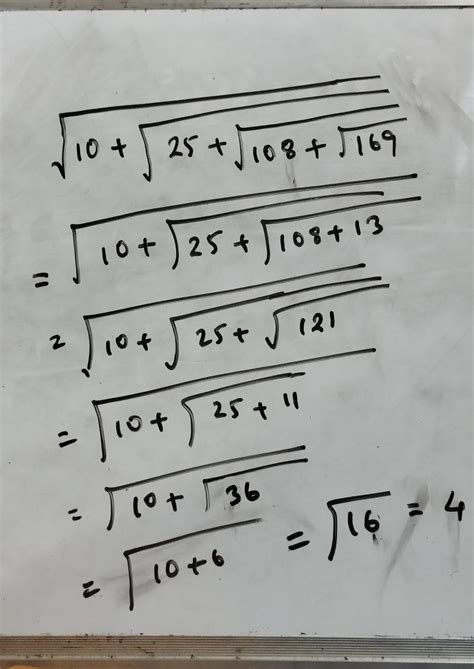 √10 + √25 + √108 + √169
= √10 + √25 + √108 + 13
= √10 + √25 + √121
= √10 + √25 + 11
= √10 + √36
= √10 + 6 = √16 = 4